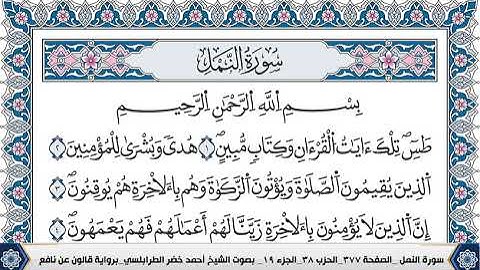 سُورَةُ النَّمْلِ
بِسْمِ اِللَّهِ اِلرَّحْمَٰنِ اِلرَّحِيمِ
طَسِٓۖ تِلْكَ ءَايَٰتُ اُلْقُرْءَانِ وَكِتَابٖ مُّبِينٍۖ ١ هُدىٗ وَبُشْرَىٰ لِلْمُؤْمِنِينَ ٢
اَلذِينَ يُقِيمُونَ اَلصَّلَوٰةَ وَيُؤْتُونَ اَلزَّكَوٰةَ وَهُم بِالَاخِرَةِ هُمْ يُوقِنُونَۖ ٣
إِنَّ اَلذِينَ لَا يُؤْمِنُونَ بِالَاخِرَةِ زَيَّنَّا لَهُمْ أَعْمَٰلَهُمْ فَهُمْ يَعْمَهُونَۖ ٤
سورة النمل _الصفحة ٣٧٧_ الحزب ٣٨_ الجزء ١٩ _ بصوت الشيخ أحمد خضر الطرابلسي_ برواية قالون عن نافع